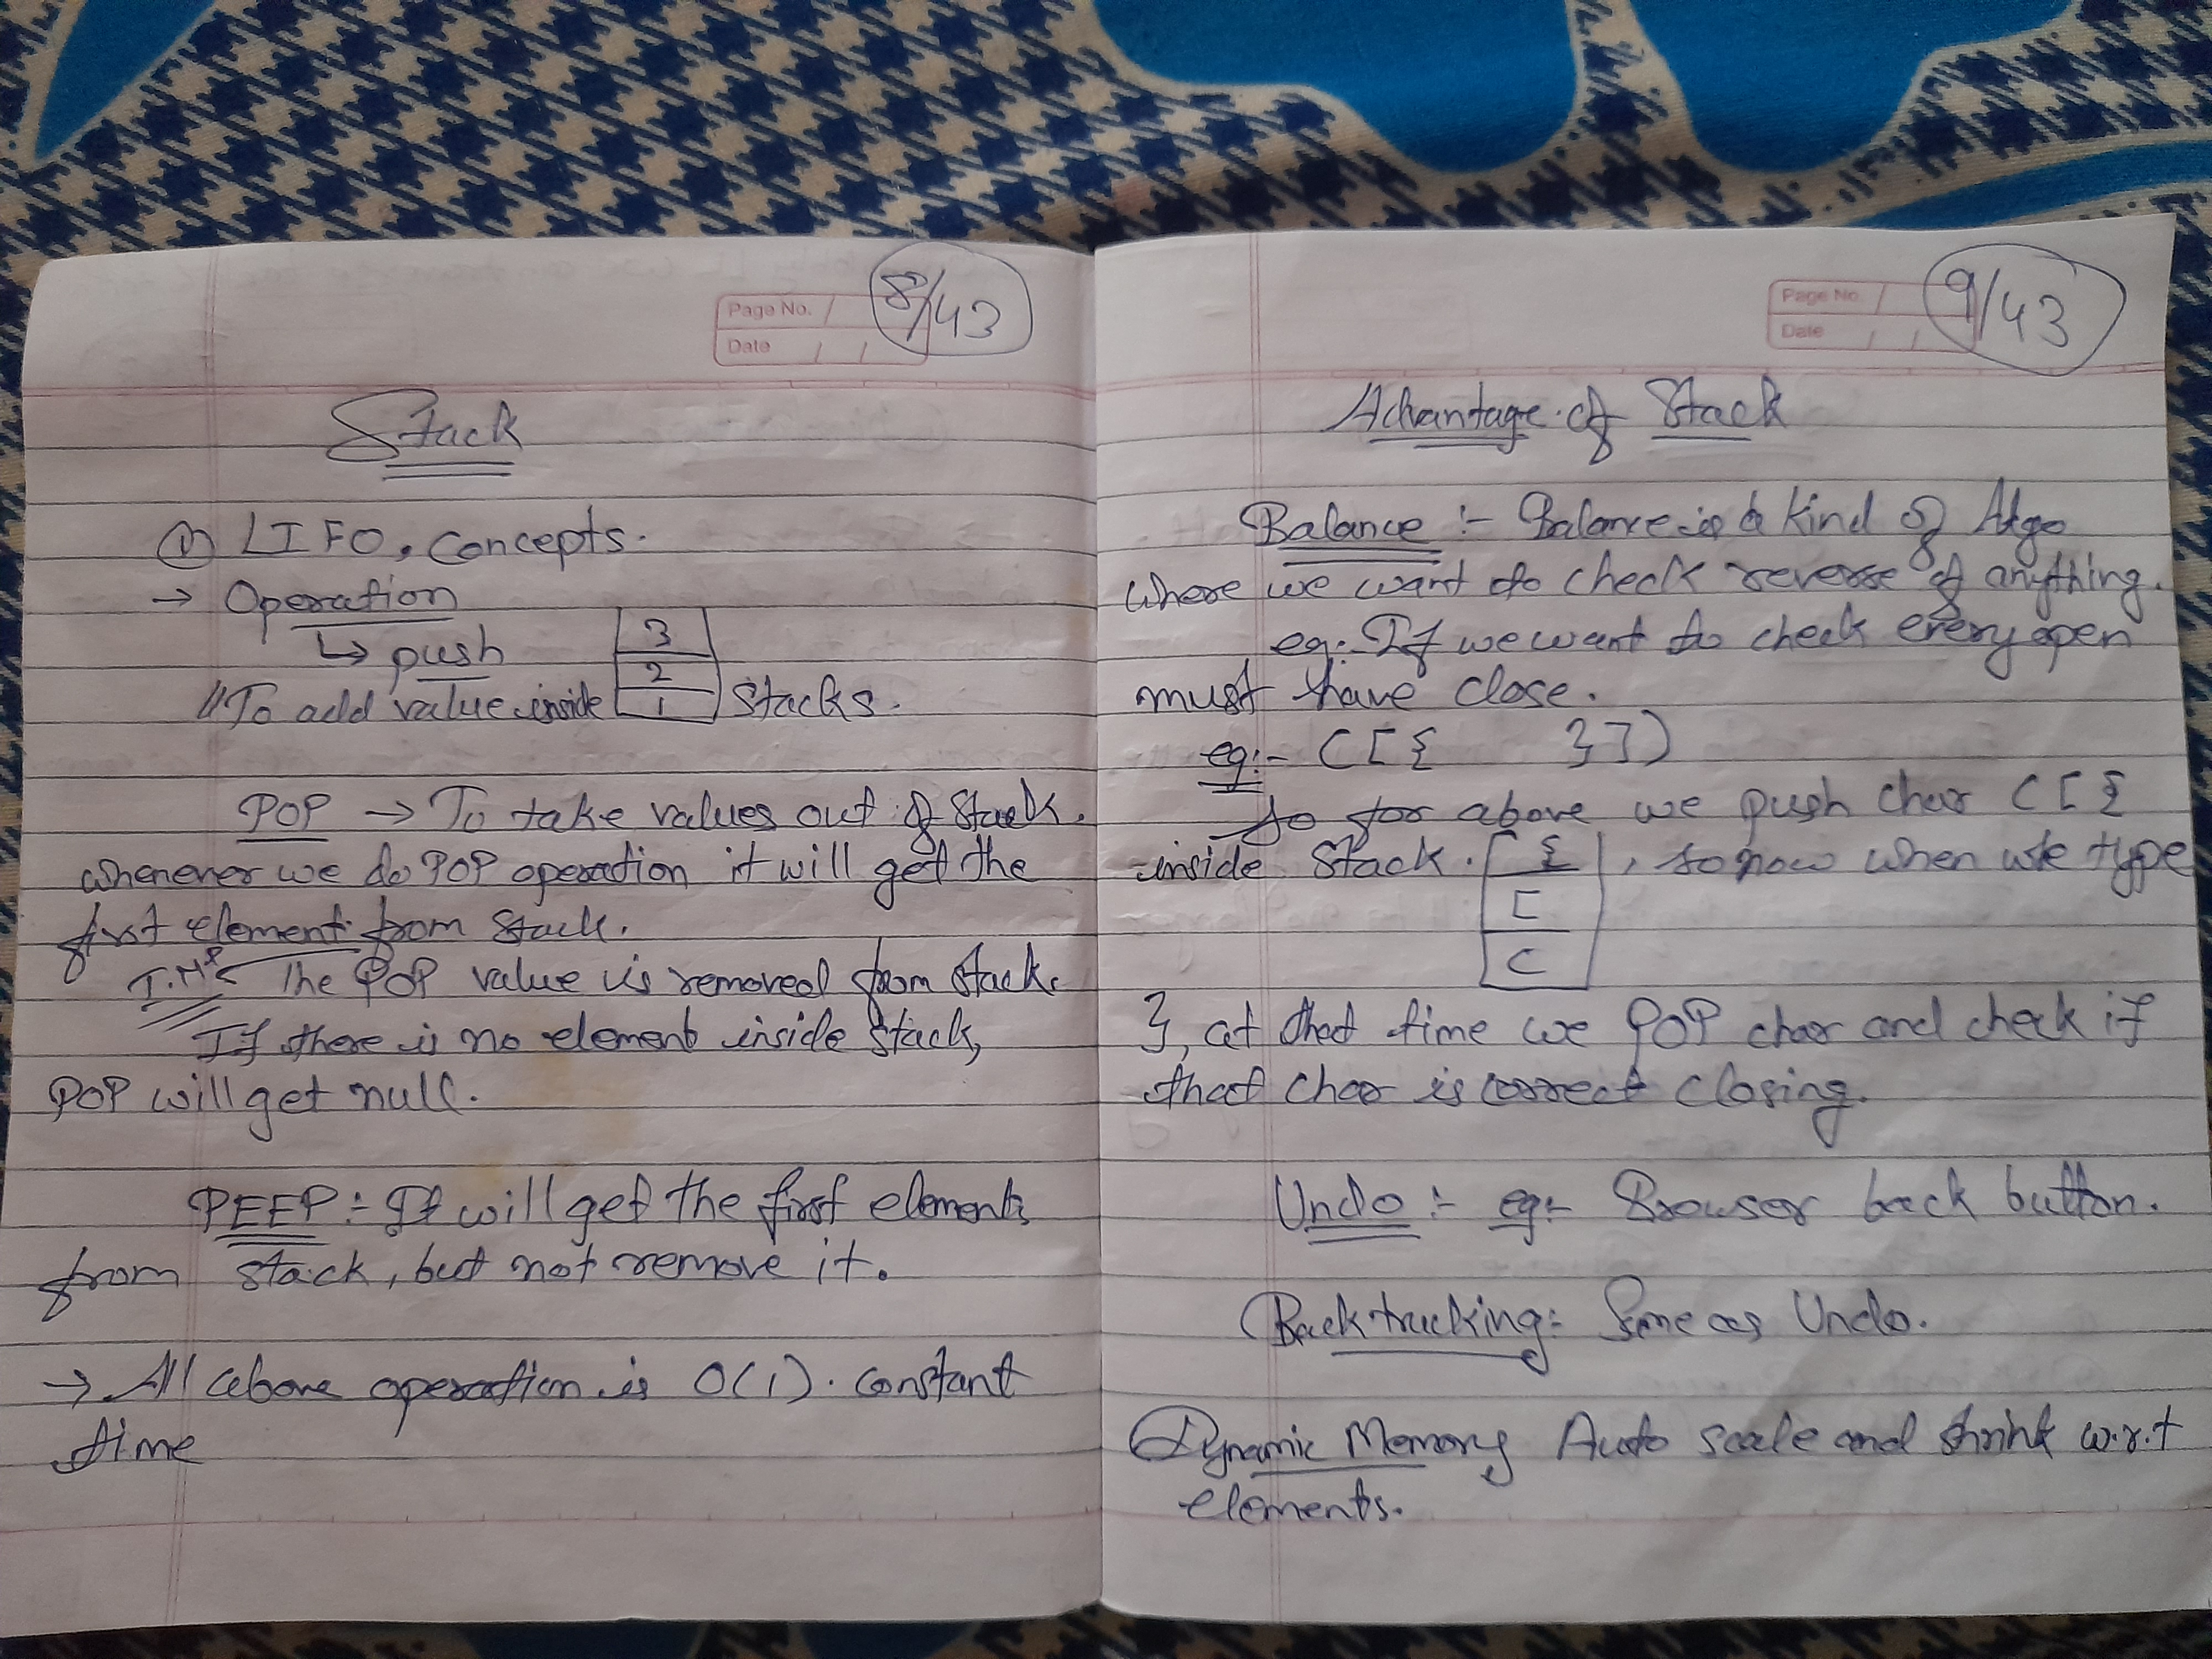 Page No. 8/43
Date / /
Stack
① LIFO, Concepts.
→ Operation
↳ push
3
2
1
"To add value inside Stacks.
POP → To take values out of Stack.
whenever we do POP operation it will get the
first element from Stack.
The POP value is removed from stack.
If there is no element inside Stack,
POP will get null.
PEEP:- It will get the first element,
from stack, but not remove it.
→ All above operation is O(1). constant
time
Page No. 9/43
Date / /
Advantage of Stack
Balance :- Balance is a kind of Algo
where we want to check reverse of anything.
eg:- If we want to check every open
must have close.
eg:- ( [ { } ] )
So for above we push char ( [ {
inside Stack. , so now when we type
{
[
(
}, at that time we POP char and check if
that char is correct closing.
Undo :- eg:- Browser back button.
Backtracking:- Same as Undo.
Dynamic Memory Auto scale and shrink w.r.t
elements.